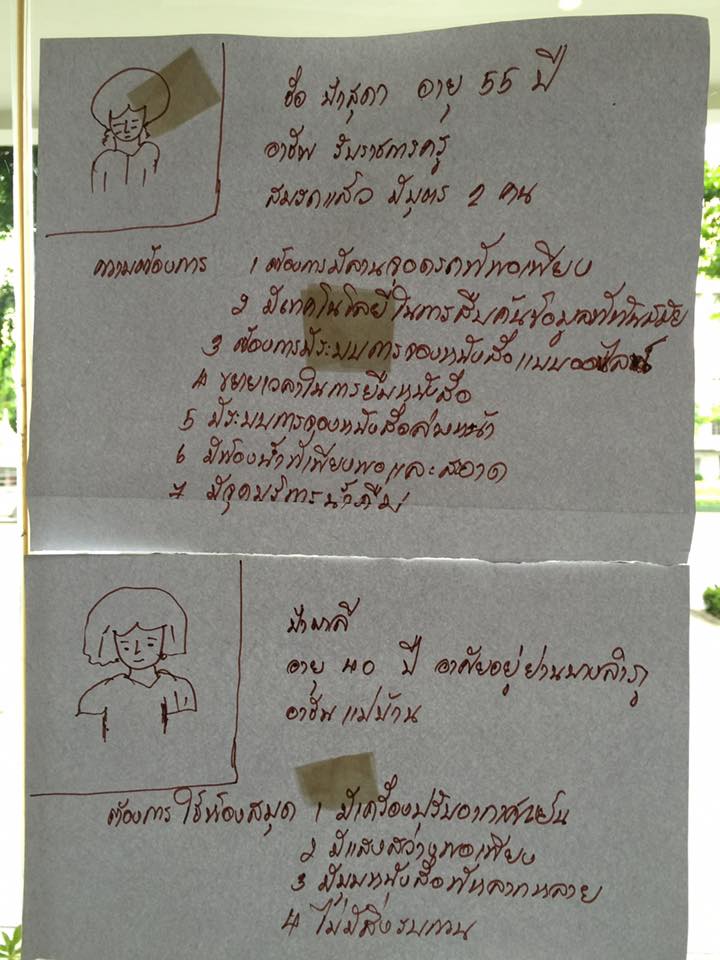 ชื่อ ป้าสุดา อายุ 55 ปี
อาชีพ รับราชการครู
สมรสแล้ว มีบุตร 2 คน
ความต้องการ 1 ต้องการมีลานจอดรถที่พอเพียง
2 มีเทคโนโลยีในการสืบค้นข้อมูลที่ทันสมัย
3 ต้องการมีระบบการจองหนังสือแบบออนไลน์
4 ขยายเวลาในการยืมหนังสือ
5 มีระบบการจองหนังสือล่วงหน้า
6 มีห้องน้ำที่เพียงพอและสะอาด
7 มีจุดบริการน้ำดื่ม
ป้ามาลี
อายุ 40 ปี อาศัยอยู่ย่านบางลำภู
อาชีพ แม่บ้าน
ต้องการ ใช้ห้องสมุด 1 มีเครื่องปรับอากาศเย็น
2 มีแสงสว่างพอเพียง
3 มีมุมหนังสือที่หลากหลาย
4 ไม่มีสิ่งรบกวน